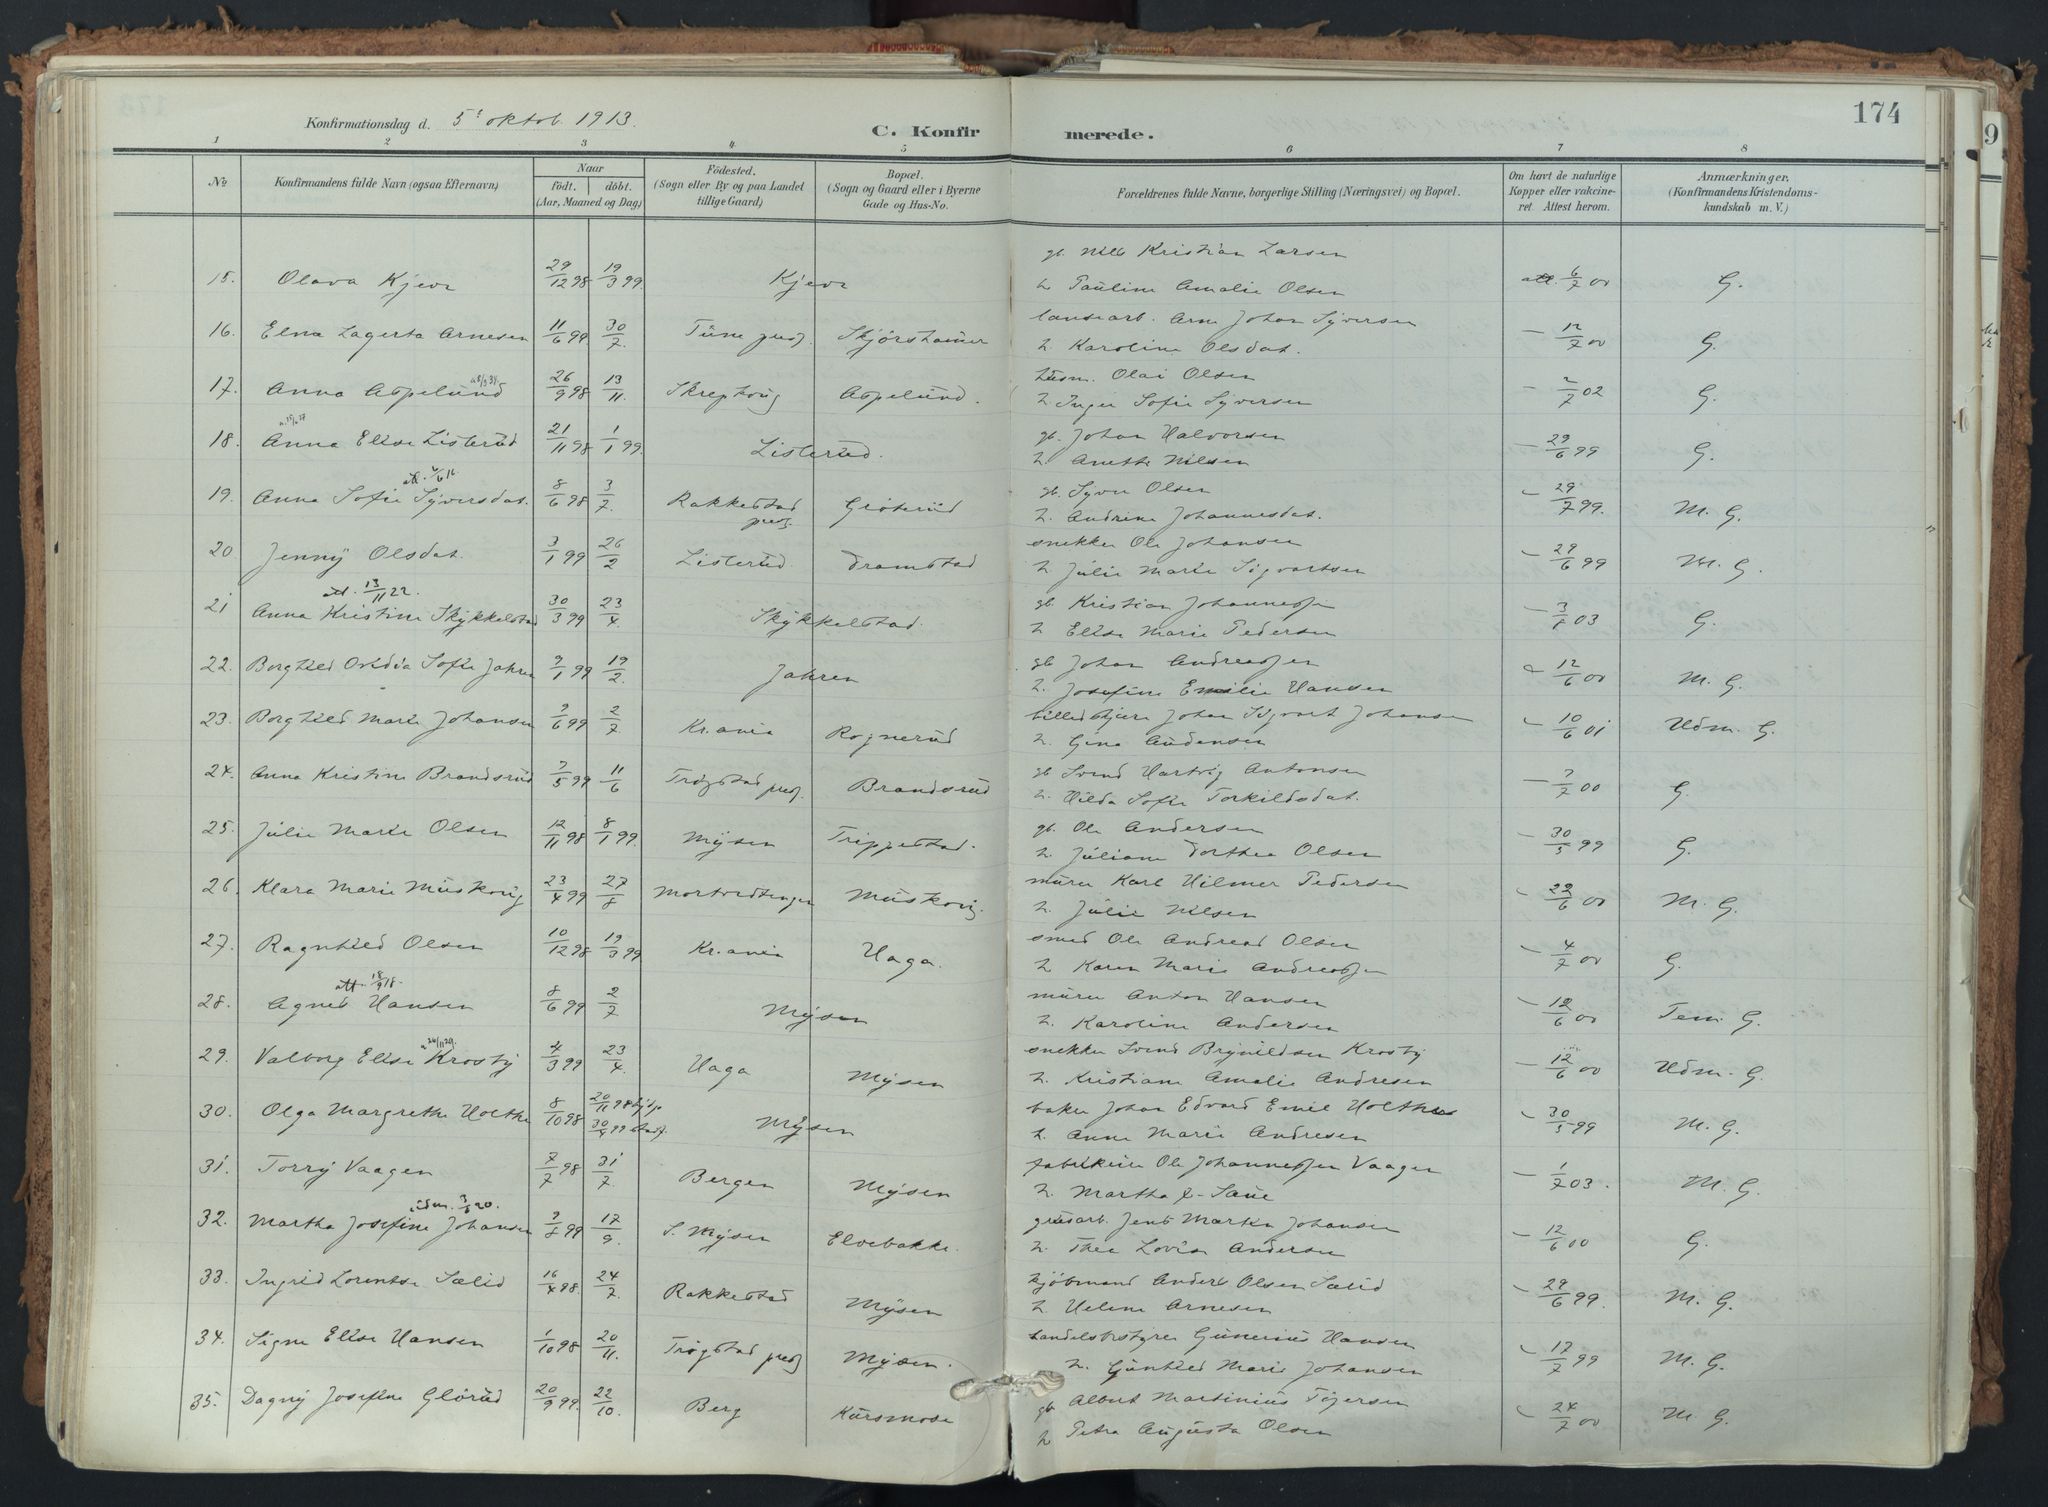 174
Konfirmationsdag d. 5' oktob. 1913.
C. Konfirmerede.
1 2 3 4 5 6 7 8
No Konfirmandens fulde Navn (ogsaa Efternavn) Naar födt. döbt. (Aar, Maaned og Dag) Födested. (Sogn eller By og paa Landet tillige Gaard) Bopæl. (Sogn og Gaard eller i Byerne Gade og Hus-No. Forældrenes fulde Navne, borgerlige Stilling (Næringsvei) og Bopæl. Om havt de naturlige Kopper eller vakcineret. Attest herom. Anmærkninger. (Konfirmandens Kristendomskundskab m. V.)
gb. Nils Kristian Larsen
15. Olava Kjevr 29/12 98 19/3 99. Kjevr h. Pauline Amalie Olsen att. 6/7 00 G.
Arne Johan Syversen
16. Elna Lagerta Arnesen 11/6 99 30/7 Tune presj. h. Karoline Olsdat. – 12/7 00 G.
husm. Olai Olsen
17. Anna Aspelund 26/9 98 13/11 Aspelund. h. Inger Sofie Syversen – 2/7 02 G.
gb. Johan Halvorsen
18. Anna Elise Listerud 21/11 98 1/1 99. Listerud. h. Anette Nilsen – 29/6 99 G.
gb. Syver Olsen
19. Anna Sofie Syversdat. 8/6 98 3/7 Rakkestad presj. Grøterud h. Andrine Johannesdat. – 29/7 99. M. G.
snekker Ole Johansen
20. Jenny Olsdat. 3/1 99 26/2 Listerud Dramstad h. Julie Marie Sigvartsen – 29/6 99 M. G.
att. 13/11 22.
gb. Kristian Johannessen
21 Anna Kristine Skykkelstad 30/3 99 23/4. Skykkelstad. h. Elise Marie Pedersen G.
gb. Johan Andreassen
22. Borghild Ovidia Sofie Jahren 9/1 99 19/2. Jahren h. Josefine Emilie Hansen – 12/6 00 M. G.
Johan Sigvart Johansen
23. Borghild Marie Johansen 2/7 Kr.ania Rognerud h. Gina Andersen – 10/6 01 Udm. G.
gb. Svend Hartvig Antonsen
24. Anna Kristine Brandsrud 7/5 99 11/6 Trøgstad presj. Brandsrud h. Hilda Sofie Torkildsdat. – 7/7 00 G.
gb. Ole Andersen
25. Julie Marie Olsen 12/11 98 8/1 99. Mysen Trippestad. h. Juliane Dorthea Olsen – 30/5 99 G.
murer Karl Hilmer Pedersen
26. Klara Marie Muskovig 23/4 99 27/8 Muskovig. h. Julie Nilsen – 22/6 00 M. G.
smed Ole Andreas Olsen
27. Ragnhild Olsen 10/12 98 19/3 99 Kr.ania Haga. h. Karen Marie Andreassen – 4/7 00 G.
att. 18/9 18.
murer Anton Hansen
28. Agnes Hansen 8/6 99 2/7 Mysen h. Karoline Andersen – 12/6 00 Tem. G.
snekker Svend Brynildsen Krosby
29. Valborg Elise Krosby 4/3 99 23/4. Haga Mysen h. Kristiane Amalie Andresen – 12/6 00 Udm. G.
baker Johan Edvard Emil Holthe
30. Olga Margrethe Holthe 8/10 98 20/11 98 hjdp 30/4 99 stadf. Mysen h. Anne Marie Andresen – 30/5 99 M. G.
Ole Johannessen Vaagen
31. Torry Vaagen 7/7 98 31/7 Bergen Mysen h. Martha – 1/7 03. M. G.
grusarb. Jens Martin Johansen
32. Martha Josefine Johansen 17/9. S. Mysen Elvebakke. h. Thea Lovisa Andersen – 12/6 00 G.
kjøbmand Anders Olsen Sælid
33. Ingrid Lorentse Sælid 16/4 98. 24/7 Rakkestad Mysen h. Helene Arnesen – 29/6 99. M. G.
handelsbestyrer Gunerius Hansen
34. Signe Elise Hansen 1/10 98 20/11. Trøgstad presj Mysen. h. Gunhild Marie Johansen – 17/7 99 M. G.
gb. Albert Martinius Tøgersen
35. Dagny Josefine Glørud 20/9 99. 22/10. Berg Kursmose h. Petra Augusta Olsen – 24/7 00 M. G.